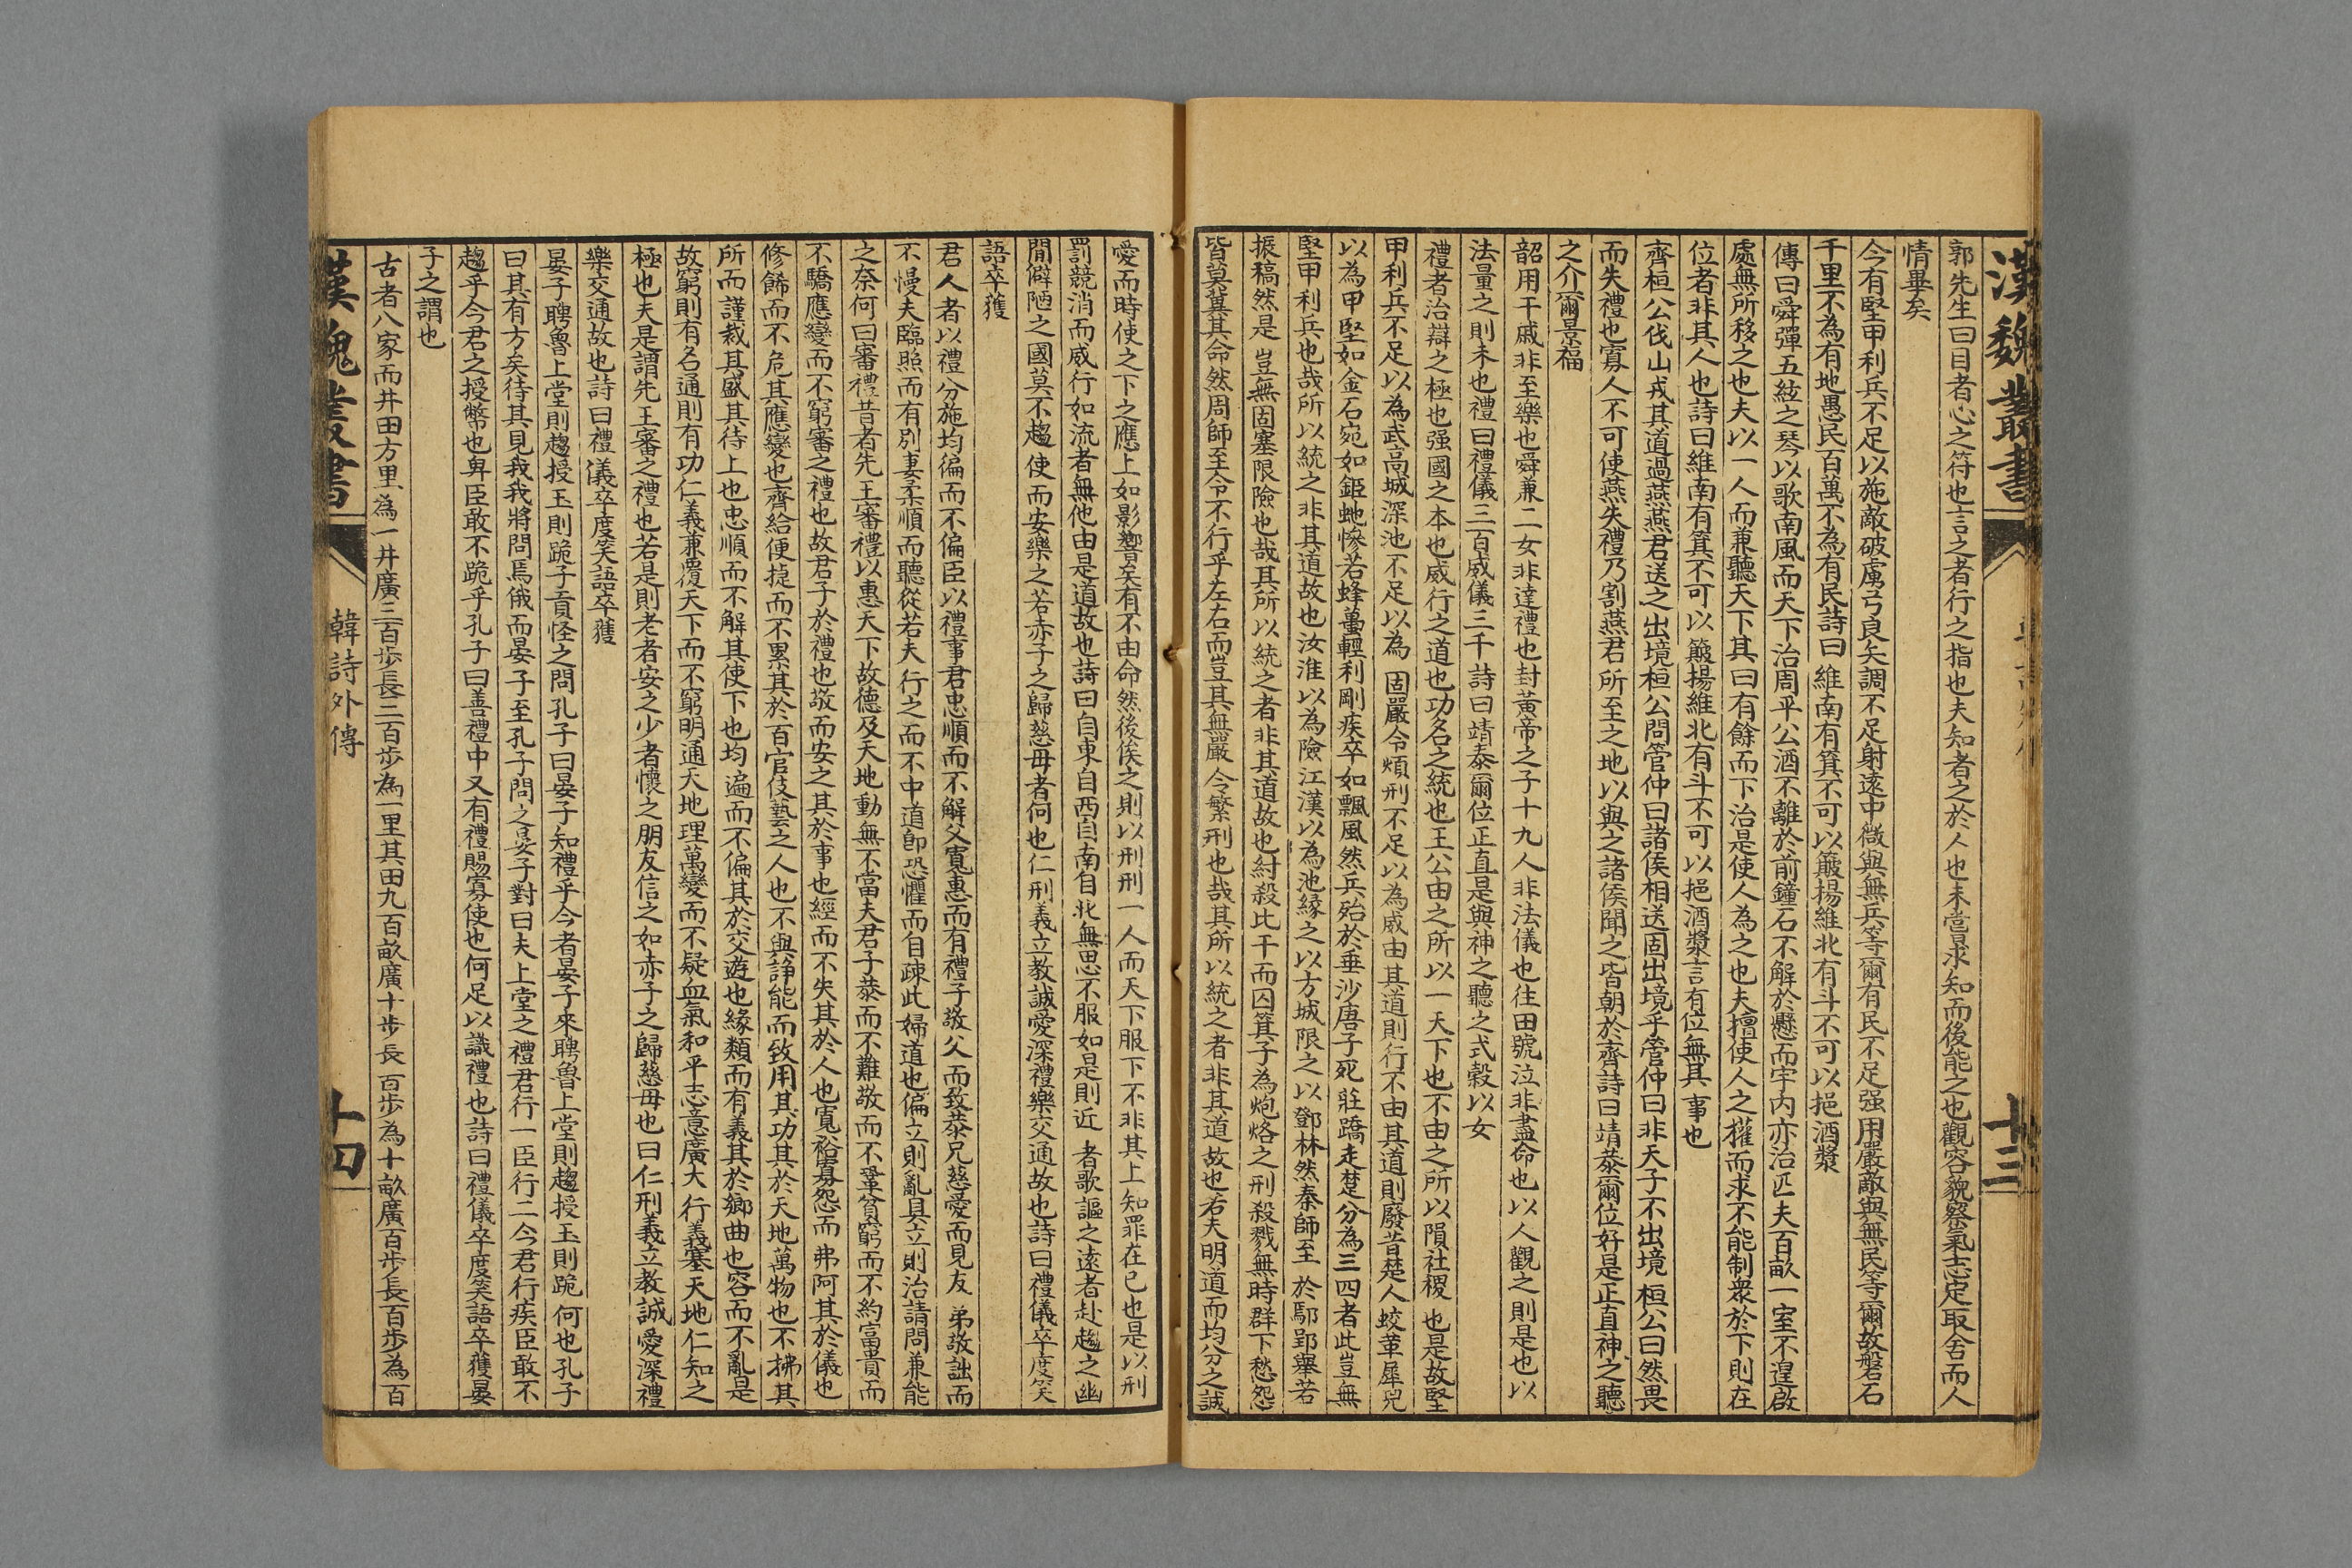 漢魏叢書
十三
郭先生曰目者心之符也言之者行之指也夫知者之於人也未嘗求知而後能之也觀容貌察氣志定取舍而人
情畢矣
今有堅甲利兵不足以施敵破虜弓良矢調不足射遠中微與無兵等爾有民不足强用嚴敵與無民等爾故磐石
千里不為有地愚民百萬不為有民詩曰維南有箕不可以簸揚維北有斗不可以挹酒漿
傳曰舜彈五絃之琴以歌南風而天下治周平公酒不離於前鐘石不解於懸而宇內亦治匹夫百畝一室不遑啟
處無所移之也夫以一人而兼聽天下其曰有餘而下治是使人為之也夫擅使人之權而求不能制衆於下則在
位者非其人也詩曰維南有箕不可以簸揚維北有斗不可以挹酒漿言有位無其事也
齊桓公伐山戎其道過燕燕君送之出境桓公問管仲曰諸侯相送固出境乎管仲曰非天子不出境桓公曰然畏
而失禮也寡人不可使燕失禮乃割燕君所至之地以與之諸侯聞之皆朝於齊詩曰靖恭爾位好是正直神之聽
之介爾景福
韶用干戚非至樂也舜兼二女非達禮也封黃帝之子十九人非法儀也往田號泣非盡命也以人觀之則是也以
法量之則未也禮曰禮儀三百威儀三千詩曰靖泰爾位正直是與神之聽之式穀以女
禮者治辯之極也强國之本也威行之道也功名之統也王公由之所以一天下也不由之所以隕社稷也是故堅
甲利兵不足以為武高城深池不足以為固嚴令煩刑不足以為威由其道則行不由其道則廢昔楚人蛟革犀兕
以為甲堅如金石宛如鉅虵慘若蜂蠆輕利剛疾卒如飄風然兵殆於垂沙唐子死莊蹻走楚分為三四者此豈無
堅甲利兵也哉所以統之非其道故也汝淮以為險江漢以為池緣之以方城限之以鄧林然秦師至於鄢郢舉若
振稿然是豈無固塞限險也哉其所以統之者非其道故也紂殺比干而囚箕子為炮烙之刑殺戮無時群下愁怨
皆莫冀其命然周師至令不行乎左右而豈其無嚴令繁刑也哉其所以統之者非其道故也若夫明道而均分之誠
愛而時使之下之應上如影響矣有不由命然後俟之則以刑刑一人而天下服下不非其上知罪在已也是以刑
罰競消而威行如流者無他由是道故也詩曰自東自西自南自北無思不服如是則近者歌謳之遠者赴趨之幽
閒僻陋之國莫不趨使而安樂之若赤子之歸慈母者何也仁刑義立教誠愛深禮樂交通故也詩曰禮儀卒度笑
語卒獲
君人者以禮分施均徧而不偏臣以禮事君忠順而不解父寬惠而有禮子敬父而致恭兄慈愛而見友弟敬詘而
不慢夫臨照而有別妻柔順而聽從若夫行之而不中道即恐懼而自竦此婦道也偏立則亂具立則治請問兼能
之奈何曰審禮昔者先王審禮以惠天下故德及天地動無不當夫君子恭而不難敬而不鞏貧窮而不約富貴而
不驕應變而不窮審之禮也故君子於禮也敬而安之其於事也經而不失其於人也寬裕寡怨而弗阿其於儀也
修飾而不危其應變也齊給便捷而不累其於百官伎藝之人也不與諍能而致用其功其於天地萬物也不拂其
所而謹裁其盛其待上也忠順而不解其使下也均遍而不偏其於交遊也緣類而有義其於鄉曲也容而不亂是
故窮則有名通則有功仁義兼覆天下而不窮明通天地理萬變而不疑血氣和平志意廣大行義塞天地仁知之
極也夫是謂先王審之禮也若是則老者安之少者懷之朋友信之如赤子之歸慈母也曰仁刑義立教誠愛深禮
樂交通故也詩曰禮儀卒度笑語卒獲
晏子聘魯上堂則趨授玉則跪子貢怪之問孔子曰晏子知禮乎今者晏子來聘魯上堂則趨授玉則跪何也孔子
曰其有方矣待其見我我將問焉俄而晏子至孔子問之晏子對曰夫上堂之禮君行一臣行二今君行疾臣敢不
趨乎今君之授幣也卑臣敢不跪乎孔子曰善禮中又有禮賜寡使也何足以識禮也詩曰禮儀卒度笑語卒獲晏
子之謂也
古者八家而井田方里為一井廣三百步長三百步為一里其田九百畝廣十步長百步為十畝廣百步長百步為百
漢魏叢書
韓詩外傳
十四